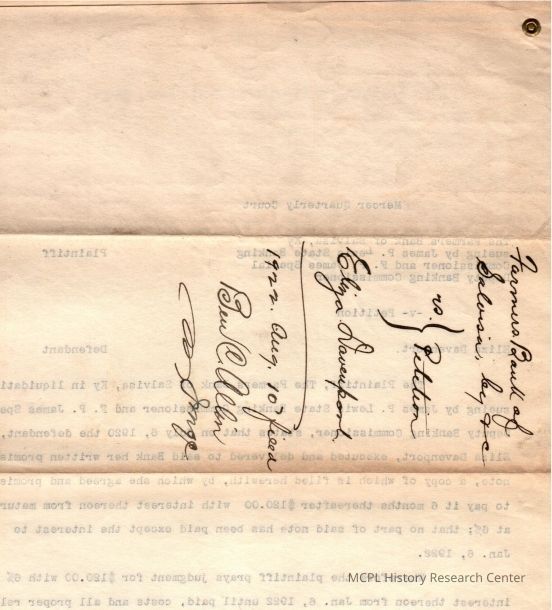 Farmers Bank of
Salvisa Ky, &c
vs. } Petition
Eliza Davenport
1922. Aug. 10 filed
Ben C. Allin
Mercer Quarterly Court
The Farmers Bank of Salvisa, Ky
suing by James P. Lewis State Banking Plaintiff
Commissioner and F. P. James Special
Banking Commissioner
-v- Petition
Eliza Davenport. Defendant
Plaintiff The Farmers Bank Salvisa, Ky in liquidati
suing by James P. Lewis State Banking Commissioner and F. P. James Spe
Deputy Banking Commissioner, states that on July 6, 1920 the defendant,
Eliza Davenport, executed and delivered to said Bank her written promis
note, a copy of which is filed herewith, by which she agreed and promis
to pay it 6 months thereafter $120.00 with interest thereon from matur
at 6%; that no part of said note has been paid except the interest to
Jan. 6, 1922.
the plaintiff prays judgment for $120.00 with 6%
interest thereon from Jan. 6, 1922 until paid, costs and all proper rel
MCPL History Research Center